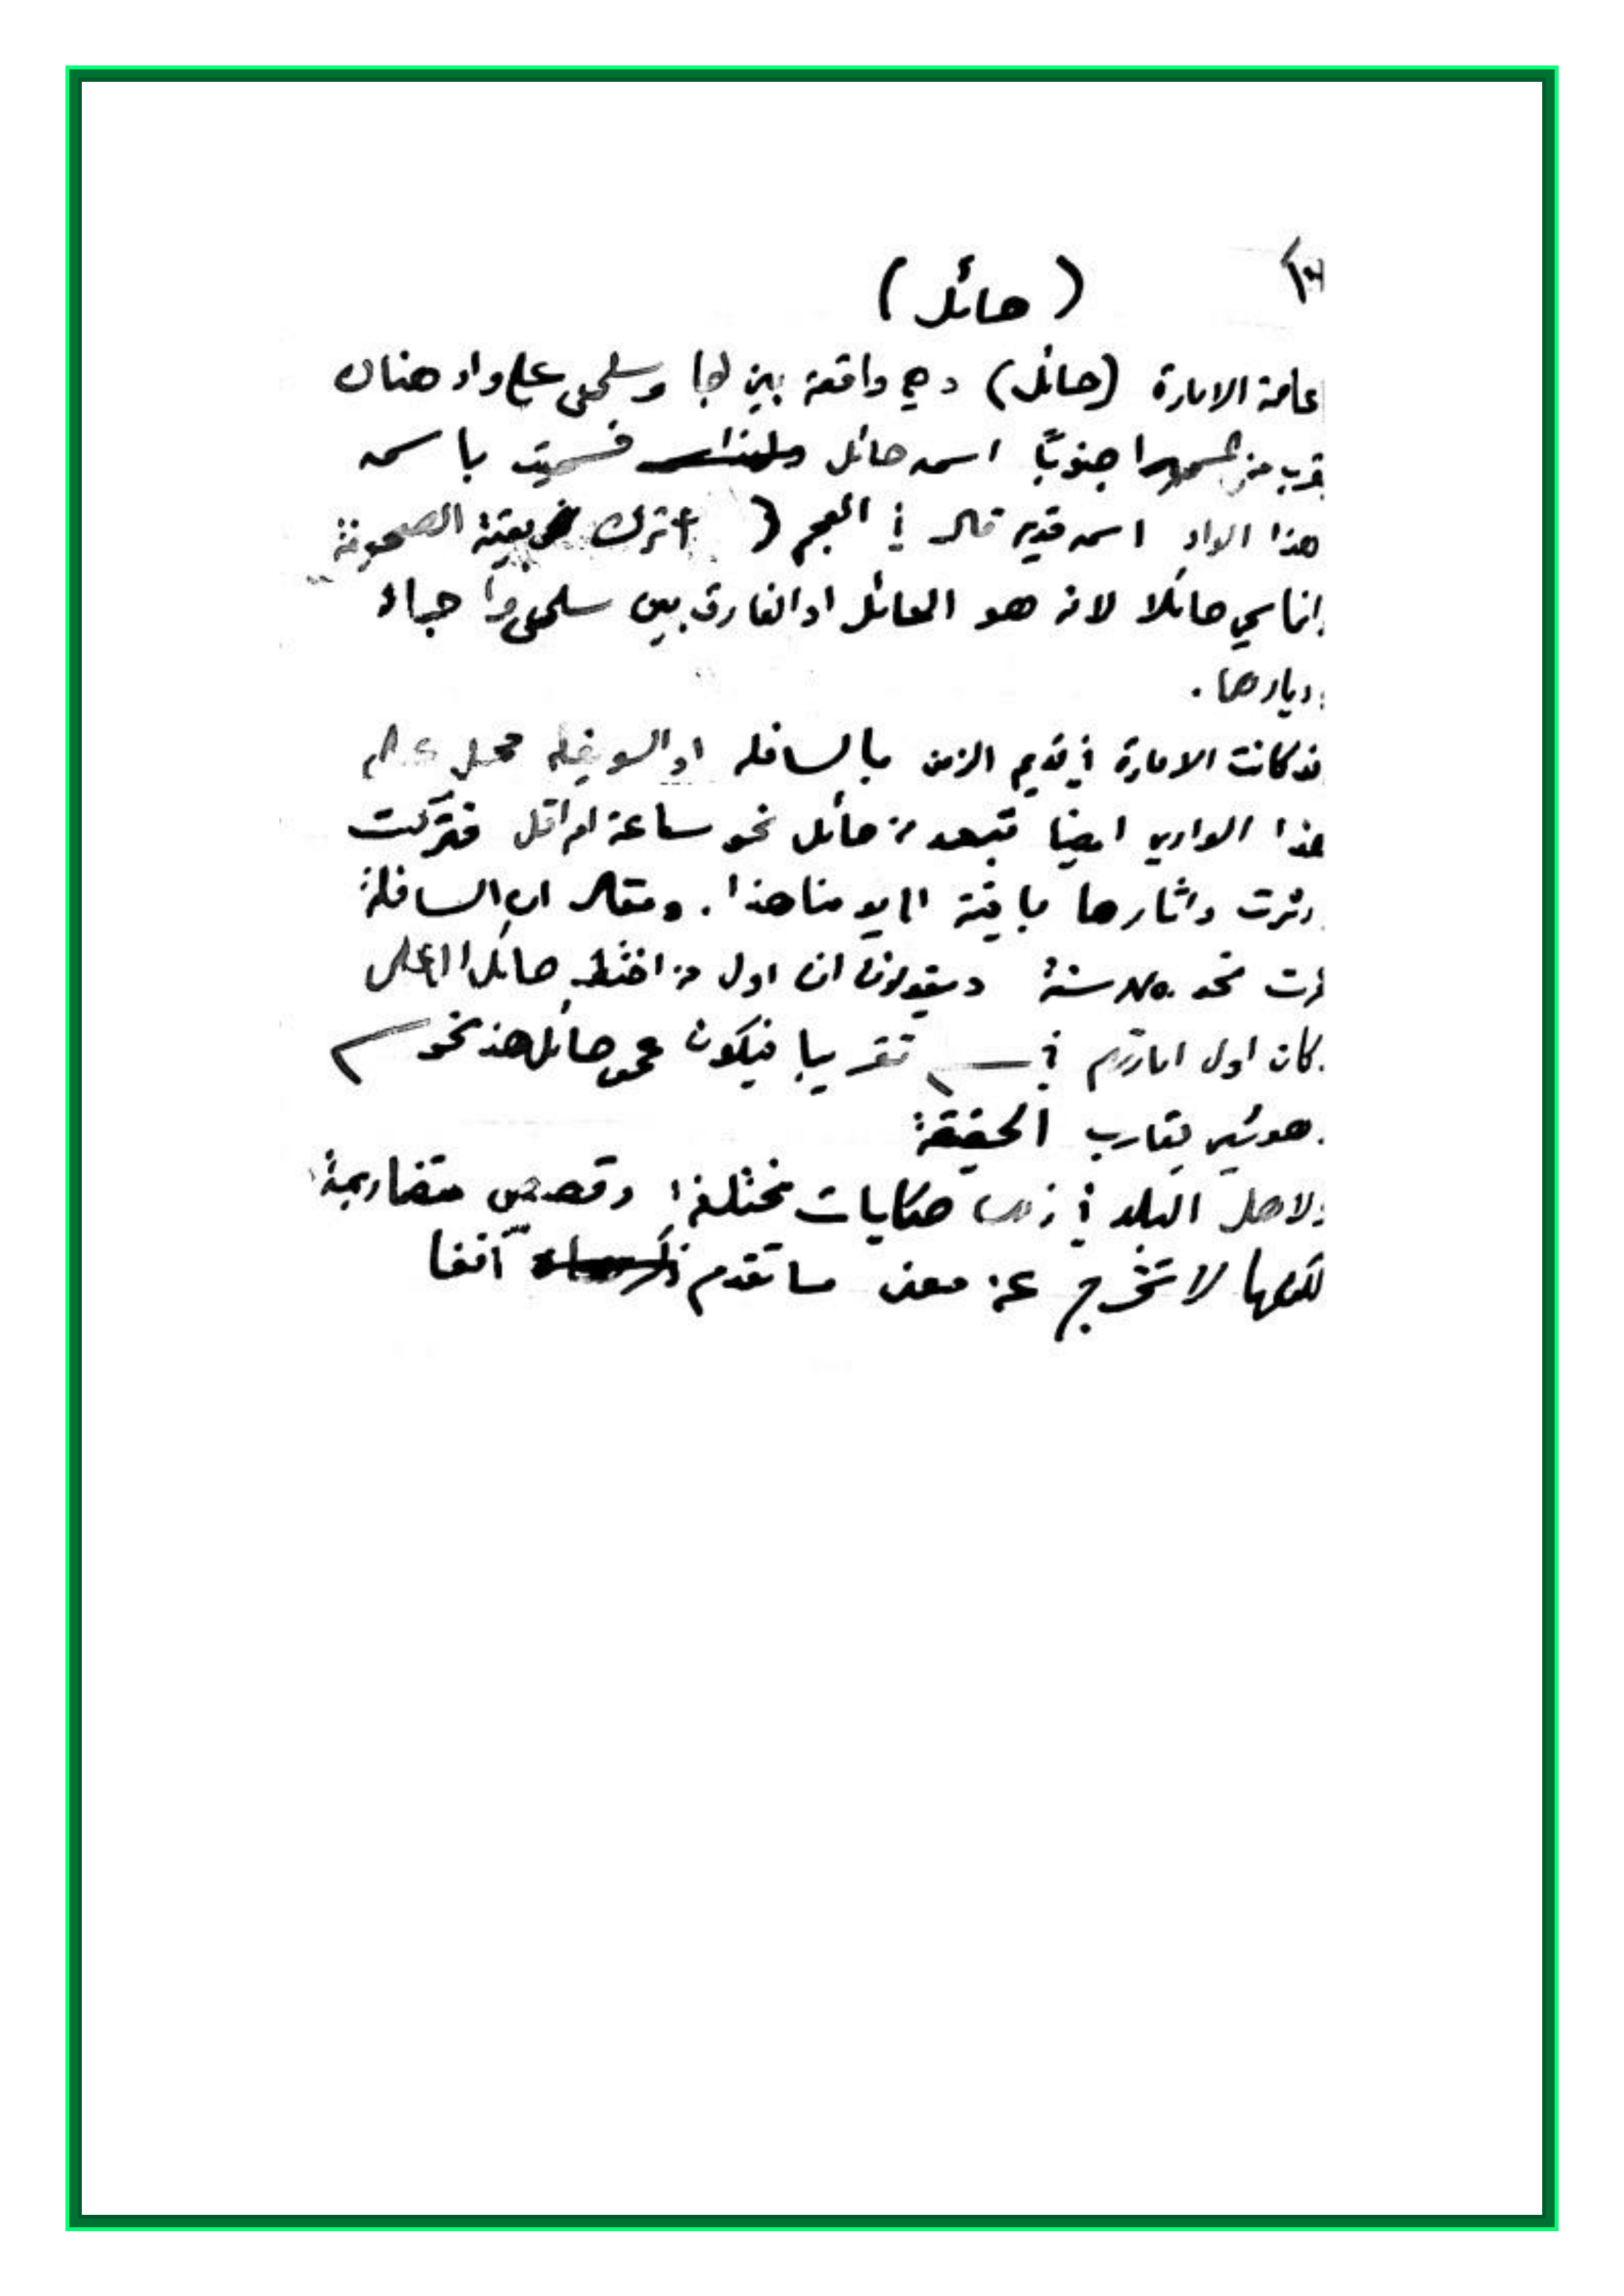 (حائل)
عاصمة الامارة (حائل) وهي واقعة بين اجا وسلمى على واد هناك
جنوبًا اسمه حائل فسميت باسم
هذا الوادي اسم قديم قال في المعجم ( اترك بقية الصحيفة
انما سمي حائلا لانه هو الحائل او الفارق بين سلمى واجاء
وديارها .
قد كانت الامارة في قديم الزمن بالسافله او السويفله محل على
هذا الوادي ايضا تبعد من حائل نحو ساعة او اقل فتركت
ودثرت واثارها باقية الى يومنا هذا . ويقال ان السافلة
نحو سنة ويقولون ان اول من اختط حائل
كان اول امارتهم في تقريبا فيكون عمر حائل هذه نحو
يقارب الحقيقة
ولاهل البلد في حكايات مختلفة وقصص متضاربة
لكنها لا تخرج عن معنى ما تقدم آنفا